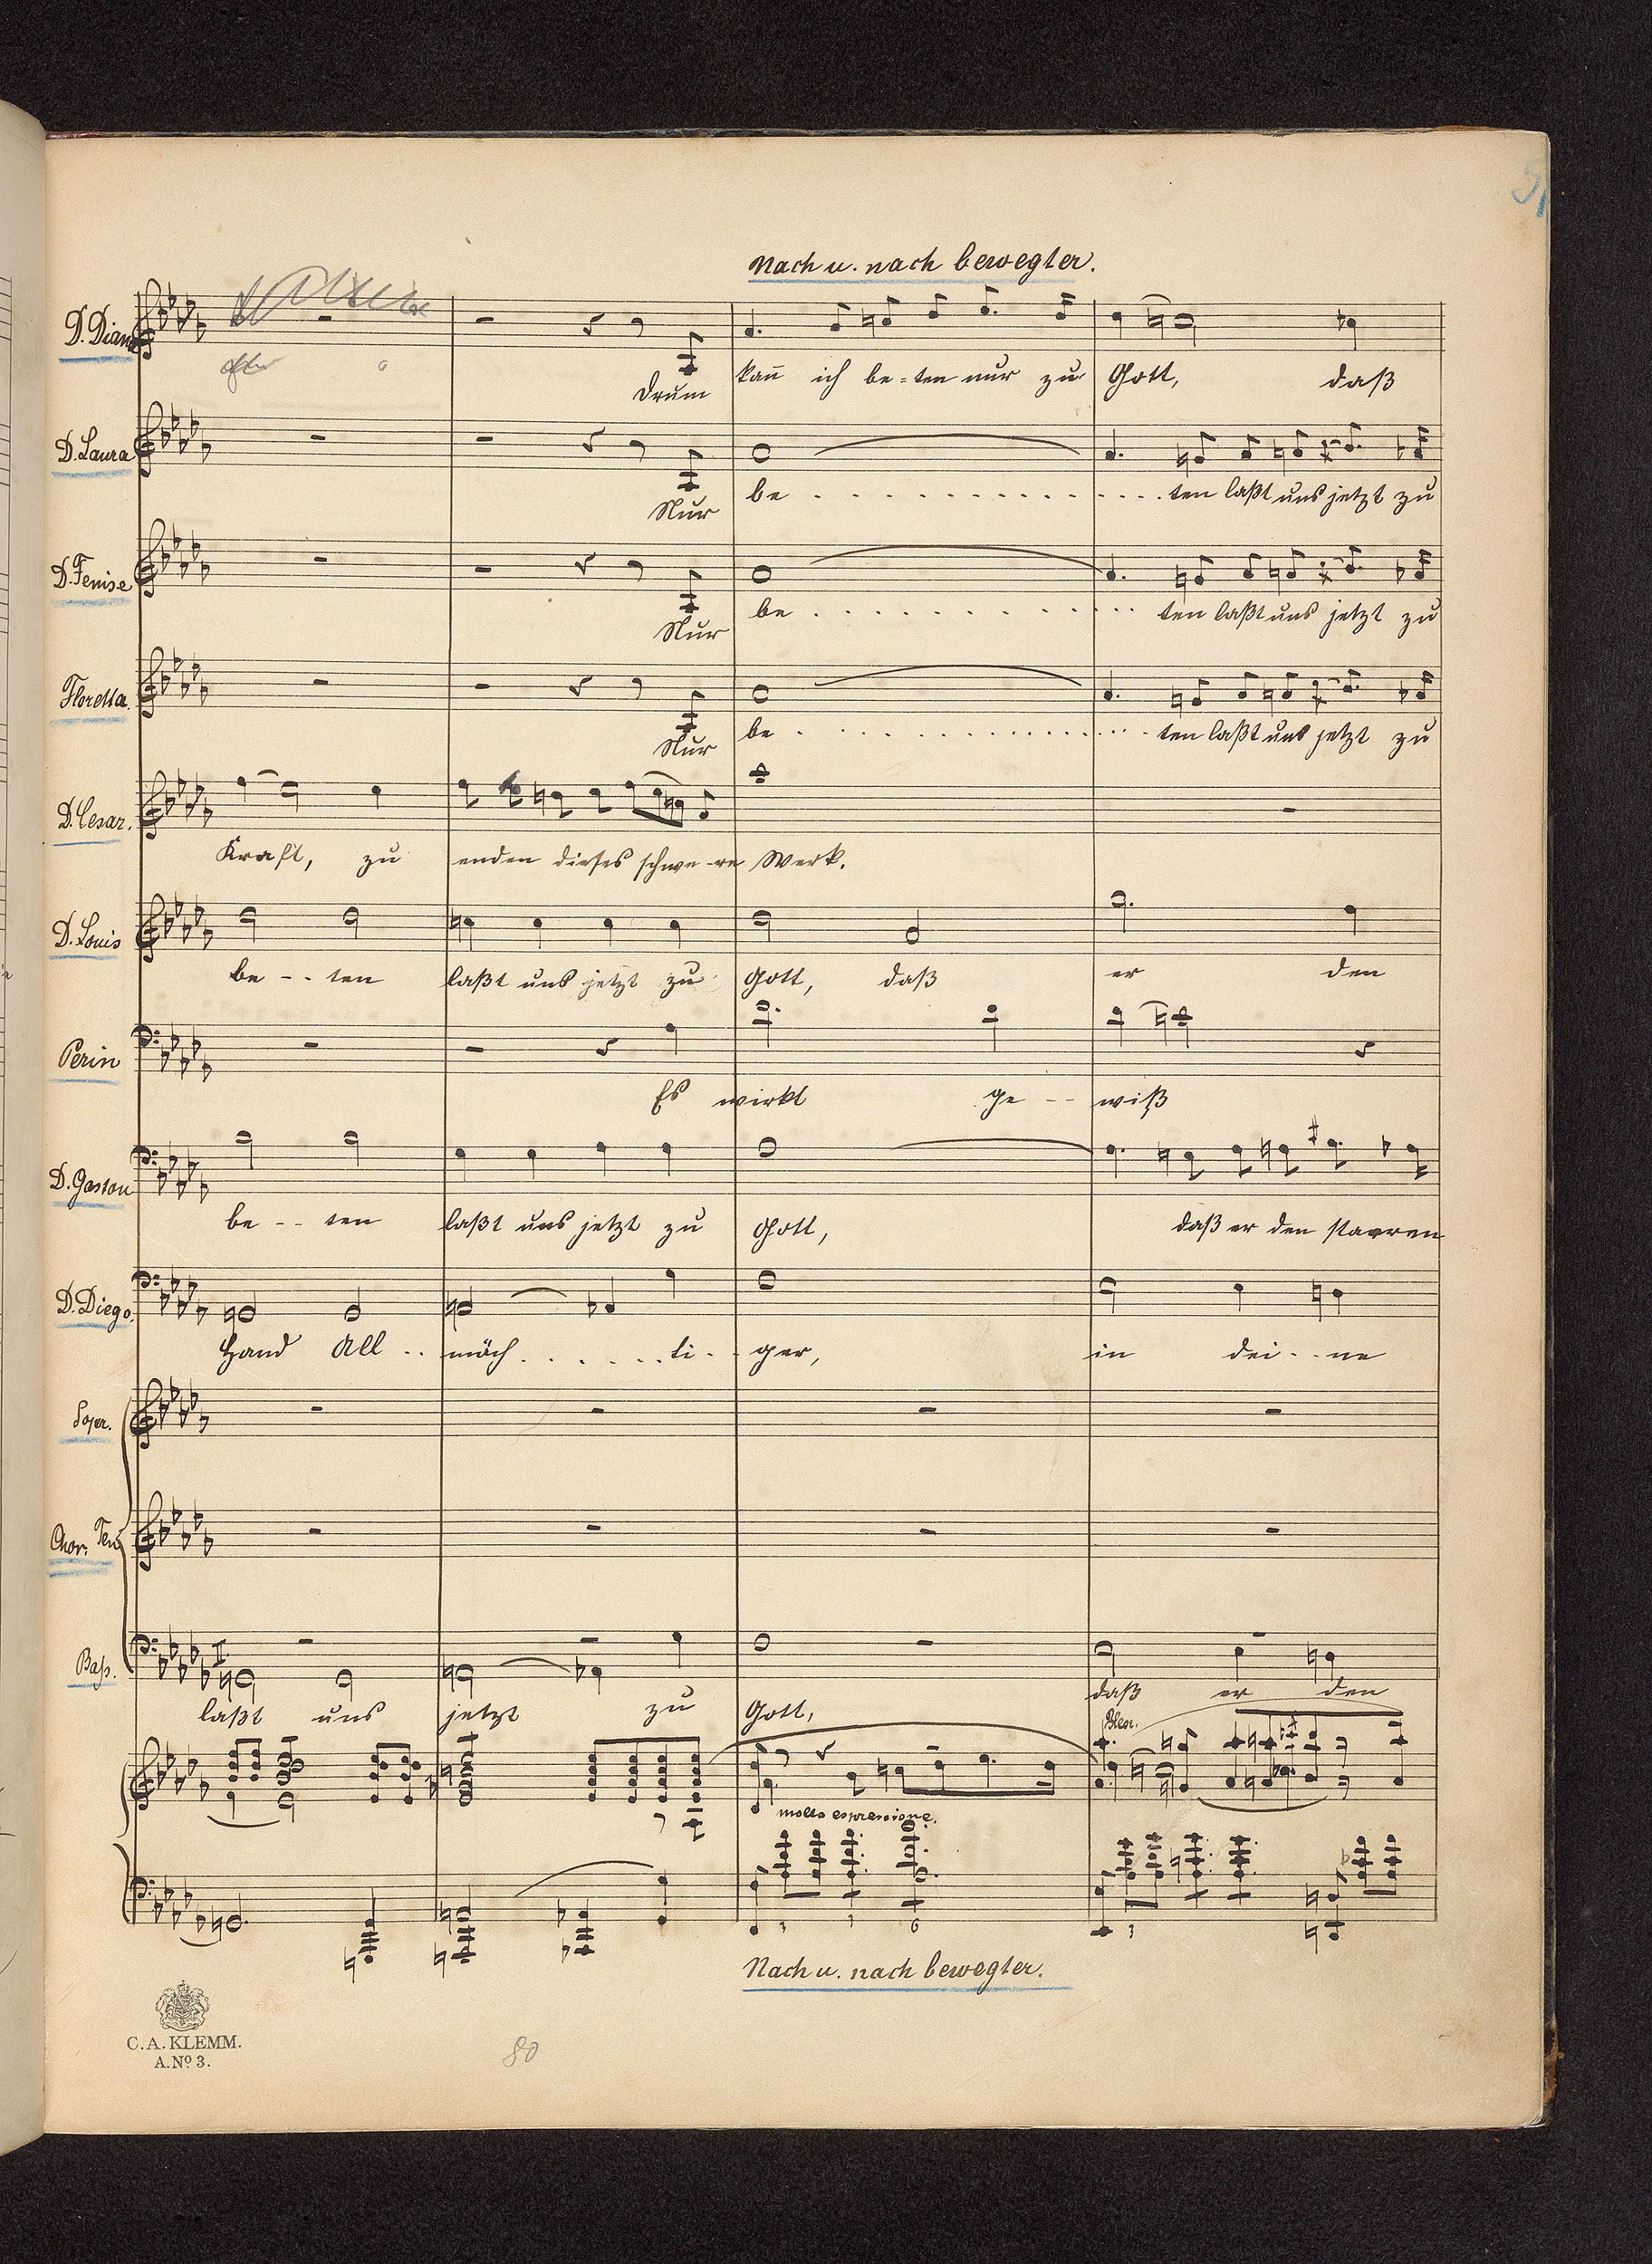 Nach u. nach bewegter.
D. Diana
Drum kan̄ ich be=ten nur zu Gott, daß
D. Laura
Nur be . . . . . . . . . . . . . . ten laßt uns jetzt zu
D. Fenise
Nur be . . . . . . . . . . . . . ten laßt uns jetzt zu
Floretta.
Nur be . . . . . . . . . . . . . . ten laßt uns jetzt zu
D. Cesar.
Kraft, zu enden dieses schwe-re Werk.
D. Louis
be - - ten laßt uns jetzt zu Gott, daß er den
Perin
Es wirkt ge - - wiß
D. Gaston
be - - ten laßt uns jetzt zu Gott, daß er den starren
D. Diego.
Hand All . . mäch . . . . . . ti . . ger, in dei . . ne
Sopr.
Chor. Ten.
Baß.
II.
laßt uns jetzt zu Gott, daß er den
Bläs.
molto espressione.
3 3 6 3
Nach u. nach bewegter.
C. A. KLEMM.
A. No 3.
80